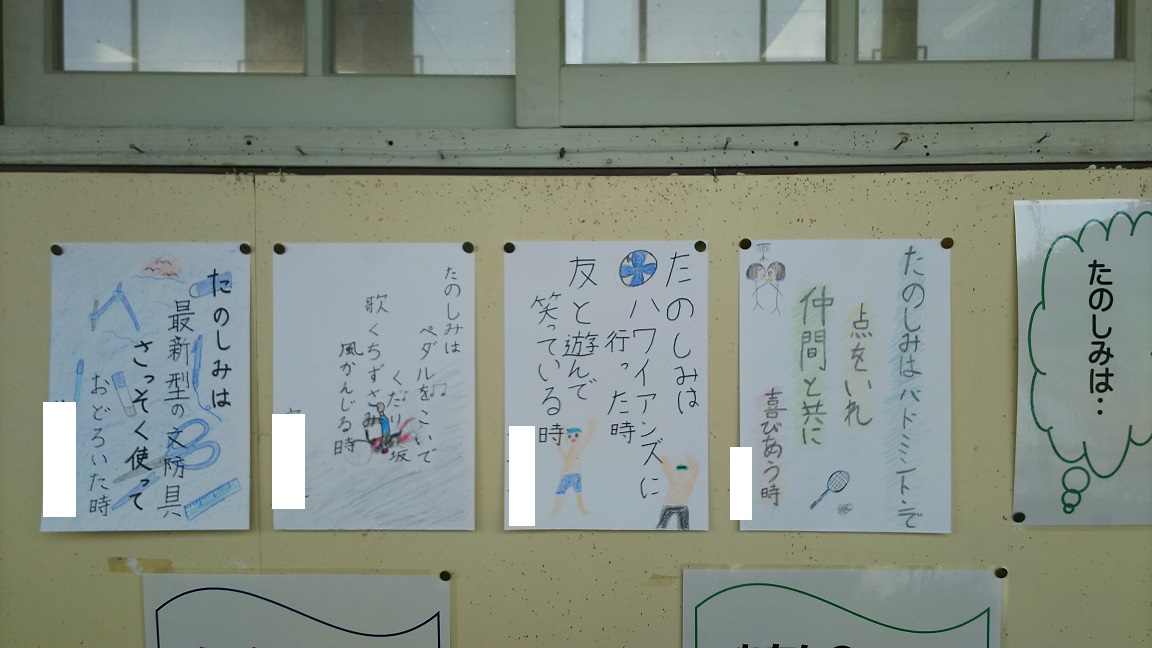 たのしみは‥
たのしみはバドミントンで
点をいれ
仲間と共に
喜びあう時
たのしみは
ハワイアンズに
行った時
友と遊んで
笑っている時
たのしみは
ペダルをこいで
くだり坂
歌くちずさみ
風かんじる時
たのしみは
最新型の文防具
さっそく使って
おどろいた時